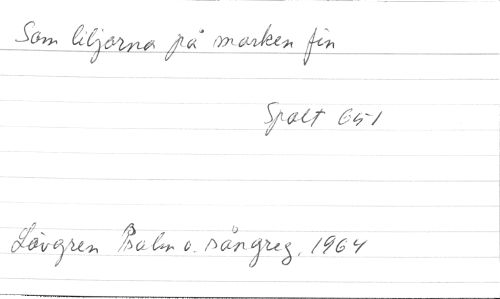 Som liljorna på marken fin
Spalt 651
Lövgren Psalm o. sångreg. 1964